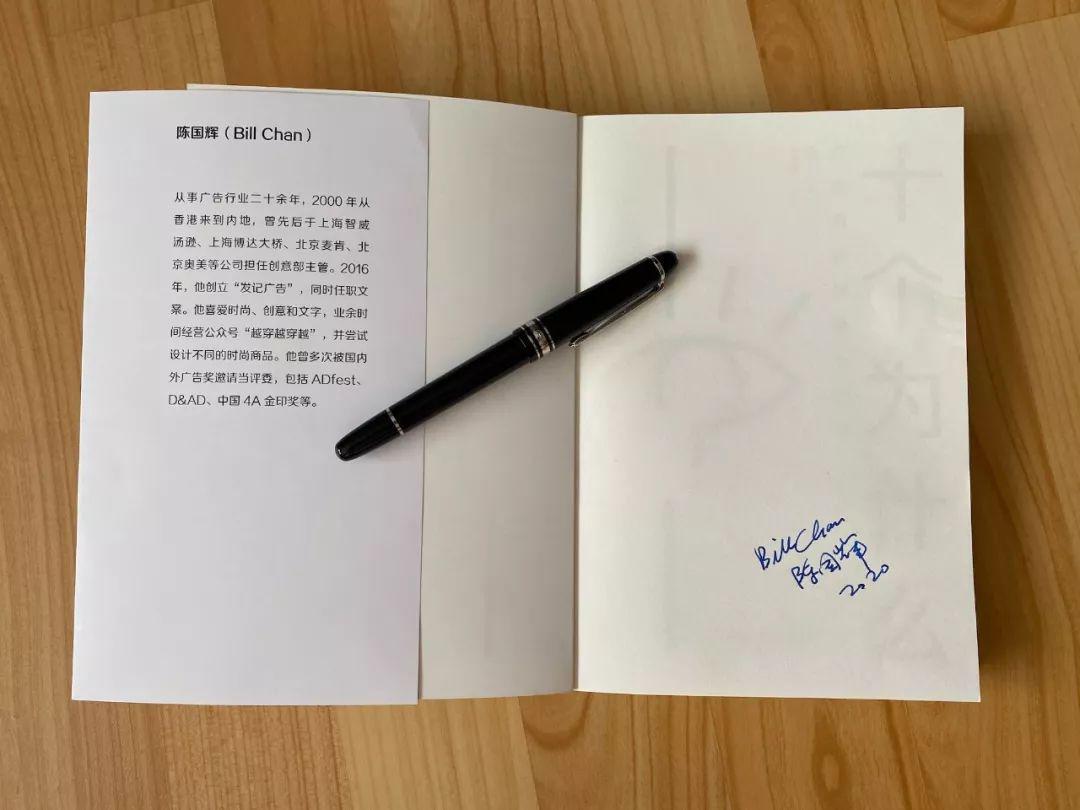 陈国辉（Bill Chan）
从事广告行业二十余年，2000 年从
香港来到内地，曾先后于上海智威
汤逊、上海博达大桥、北京麦肯、北
京奥美等公司担任创意部主管。2016
年，他创立“发记广告”，同时任职文
案。他喜爱时尚、创意和文字，业余时
间经营公众号“越穿越穿越”，并尝试
设计不同的时尚商品。他曾多次被国内
外广告奖邀请当评委，包括 ADfest、
D&AD、中国 4A 金印奖等。
Bill Chan
陈国辉
2020